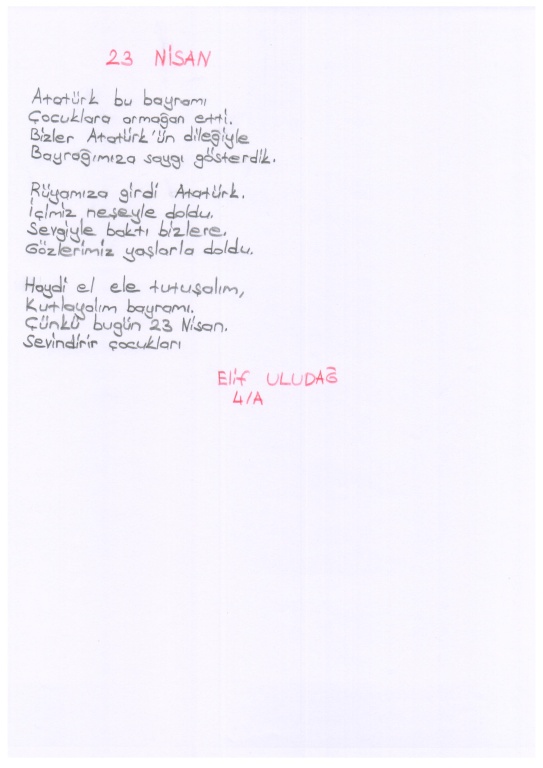 23 NİSAN
Atatürk bu bayramı
Çocuklara armağan etti.
Bizler Atatürk'ün dileğiyle
Bayrağımıza saygı gösterdik.
Rüyamıza girdi Atatürk.
İçimiz neşeyle doldu.
Sevgiyle baktı bizlere.
Gözlerimiz yaşlarla doldu.
Haydi el ele tutuşalım,
Kutlayalım bayramı.
Çünkü bugün 23 Nisan.
Sevindirir çocukları
Elif ULUDAĞ
4/A